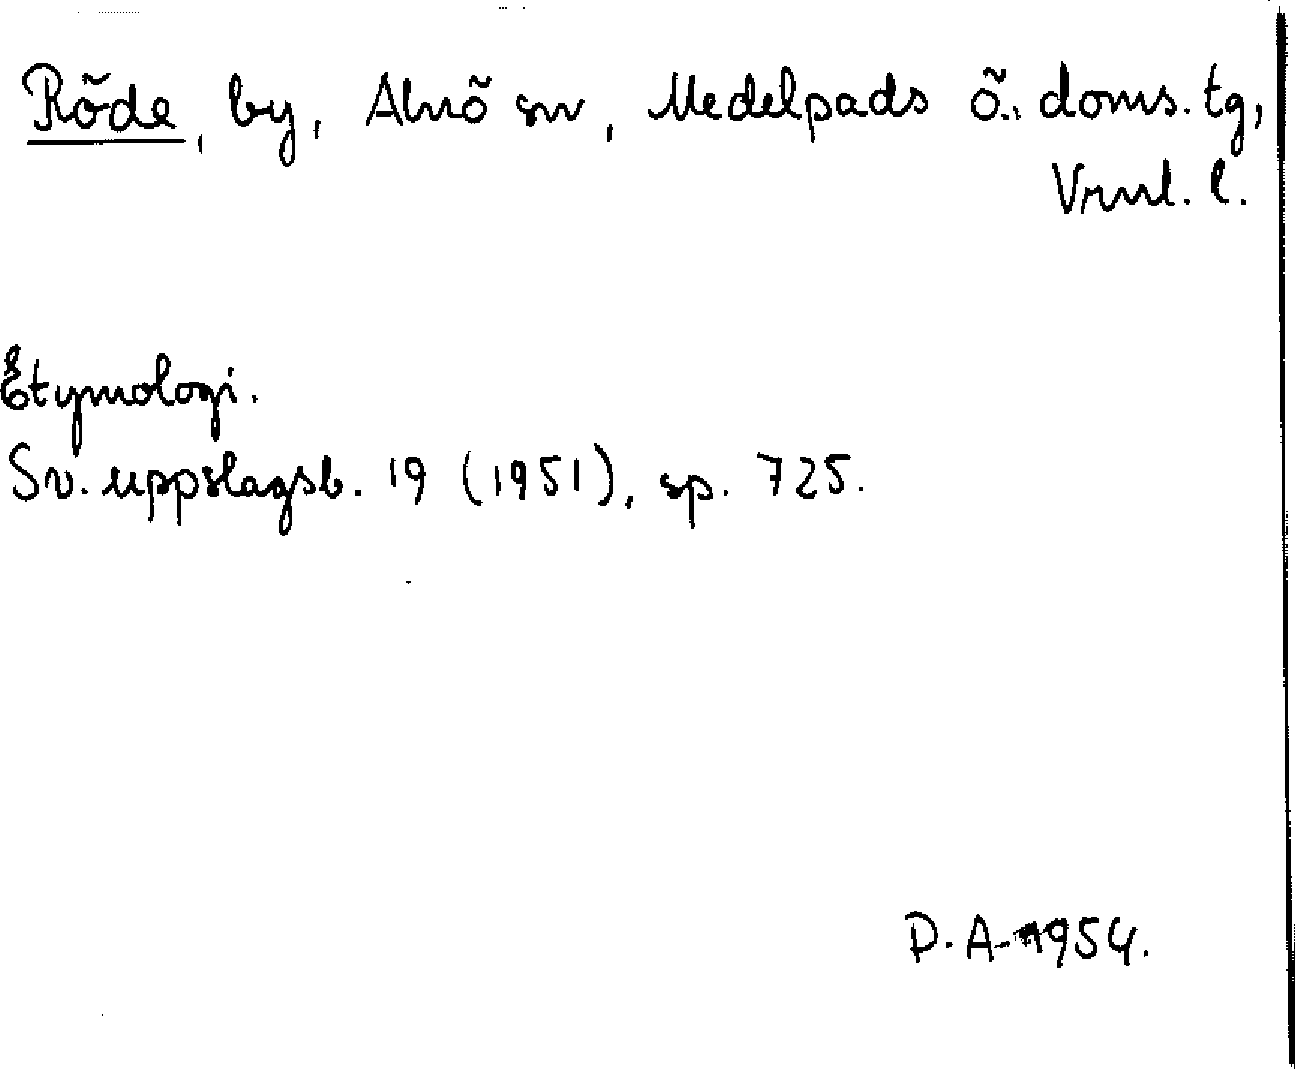 Röde, by, Alnö sn, Medelpads ö. doms. tg,
Vrnl. l.
Etymologi.
Sv. uppslagsb. 19 (1951), sp. 725.
D. A. 1954.